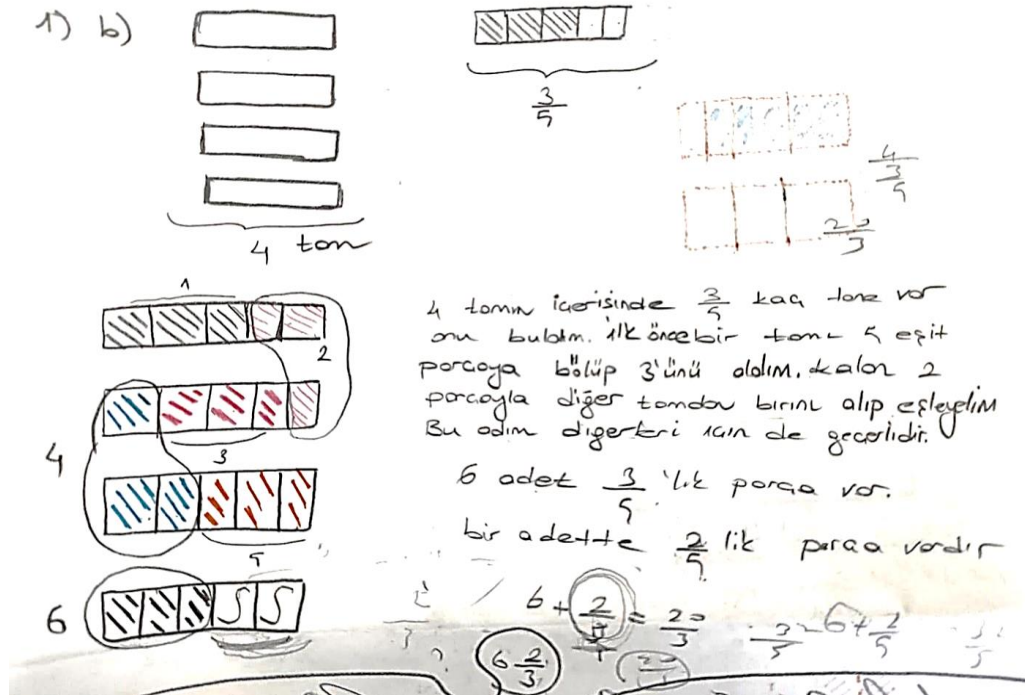 1) b)
3/5
4 tam
4/(3/5)
20/3
1
2
3
4
5
6
4 tamın içerisinde 3/5 kaç tane var
onu buldum. ilk önce bir tamı 5 eşit
parçaya bölüp 3'ünü aldım. kalan 2
parçayla diğer tamdan birini alıp eşleyelim
Bu adım diğerleri için de geçerlidir.
6 adet 3/5 'lik parça var.
bir adette 2/5 lik parça vardır
6 + 2/3 = 20/3
6 2/3
6 + 2/5